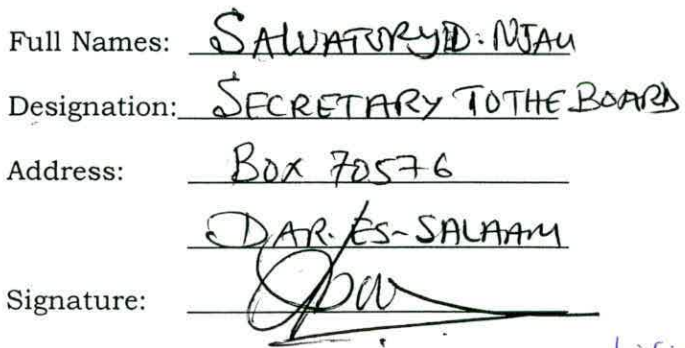 Full Names: SALVATORY D. NJAU
Designation: SECRETARY TO THE BOARD
Address: Box 70576
DAR-ES-SALAAM
Signature: